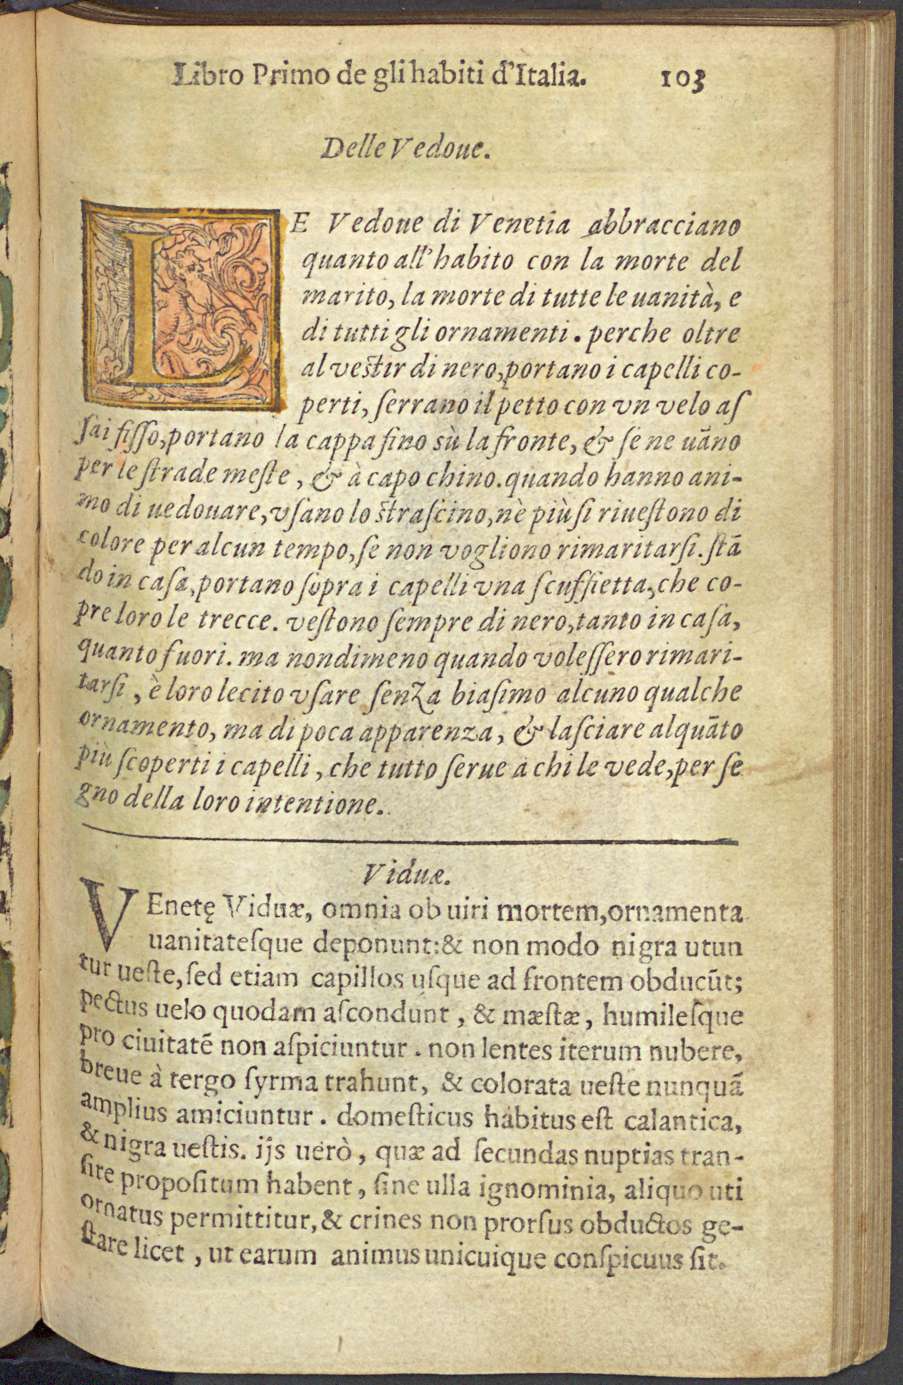 Libro Primo de gli habiti d'Italia. 103
Delle Vedoue.
LE Vedoue di Venetia abbracciano
quanto all'habito con la morte del
marito, la morte di tutte le uanità, e
di tutti gli ornamenti. perche oltre
al veſtir di nero, portano i capelli co-
perti, ſerrano il petto con vn velo aſ
ſai fiſſo, portano la cappa fino sù la fronte, & ſe ne uāno
per le ſtrade meſte, & à capo chino. quando hanno ani-
mo di uedouare, vſano lo ſtraſcino, nè più ſi riueſtono di
colore per alcun tempo, ſe non vogliono rimaritarſi. ſtā
do in caſa, portano ſopra i capelli vna ſcuffietta, che co-
pre loro le trecce. veſtono ſempre di nero, tanto in caſa,
quanto fuori. ma nondimeno quando voleſſero rimari-
tarſi, è loro lecito vſare ſenza biaſimo alcuno qualche
ornamento, ma di poca apparenza, & laſciare alquāto
più ſcoperti i capelli, che tutto ſerue à chi le vede, per ſe
gno della loro intentione.
Viduæ.
VEnetę Viduæ, omnia ob uiri mortem, ornamenta
uanitateſque deponunt: & non modo nigra utun
tur ueſte, ſed etiam capillos uſque ad frontem obducūt;
pectus uelo quodam aſcondunt, & mæſtæ, humileſque
pro ciuitatē non aſpiciuntur. non lentes iterum nubere,
breue à tergo ſyrma trahunt, & colorata ueſte nunquā
amplius amiciuntur. domeſticus habitus eſt calantica,
& nigra ueſtis. ijs uerò, quæ ad ſecundas nuptias tran-
ſire propoſitum habent, ſine ulla ignominia, aliquo uti
ornatus permittitur, & crines non prorſus obductos ge-
ſtare licet, ut earum animus unicuique conſpicuus ſit.